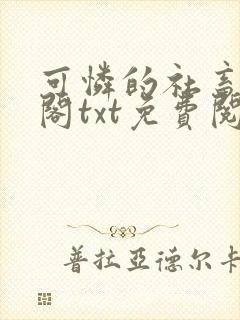 可憐的社畜
閣txt免費閱
普拉亞德尔卡